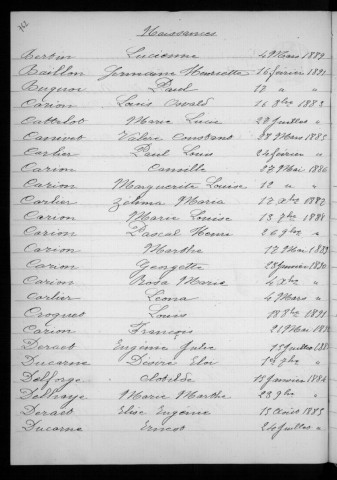 Naissances
Bertin Lucienne 4 Mars 1889
Baillon Germaine Henriette 16 février 1891
Bugnon Paul 12 " "
Carion Louis Oswald 16 8bre 1883
Cattelot Marie Lucie 29 Juillet "
Canivet Valère Constant 28 Mars 1885
Carlier Paul Louis 24 février "
Carion Camille 27 Mai 1886
Carion Marguerite Louise 12 " "
Carlier Zelema Maria 17 Xbre 1887
Carion Marie Louise 13 9bre 1888
Carion Pascal Henri 26 9bre "
Carion Marthe 17 Mai 1889
Carion Georgette 28 Janvier 1890
Carion Rosa Maria 4 Xbre "
Carlier Leona 4 Mars "
Croquet Louis 18 8bre 1891
Carion François 21 Mai
Deraet Eugénie Julie 15 Juillet
Ducarne Désiré Eloi 1er 9bre "
Delforge Clotilde 15 Janvier 1884
Delhaye Marie Marthe 23 9bre "
Deraet Elise Eugénie 15 Août 1885
Ducarne Ernest 24 Juillet "